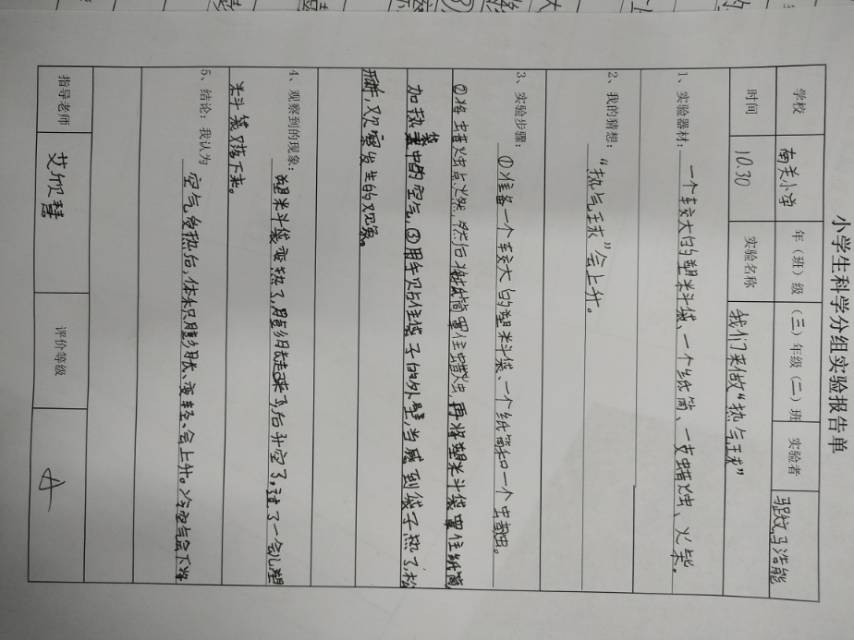 小学生科学分组实验报告单
学校 南关小学 年（班）级 （三）年级（二）班 实验者 马浩能
时间 10.30 实验名称 我们来做“热气球”
1、实验器材：一个较大的塑料袋、一个纸筒、一支蜡烛、火柴.
2、我的猜想：
“热气球”会上升。
3、实验步骤：
①准备一个较大的塑料袋、一个纸筒和一个蜡烛。
②将蜡烛点燃，然后将纸筒罩住蜡烛，再将塑料袋罩住纸筒
加热袋中的空气，③用手贴住袋子的外壁，当感到袋子热了，松
开，观察发生的现象。
4、观察到的现象：
塑料袋变热了，膨胀起来了后升空了，过了一会儿塑
料袋落下来。
5、结论：我认为
空气受热后，体积膨胀、变轻、会上升。冷空气会下降
指导老师 慧 评价等级 A